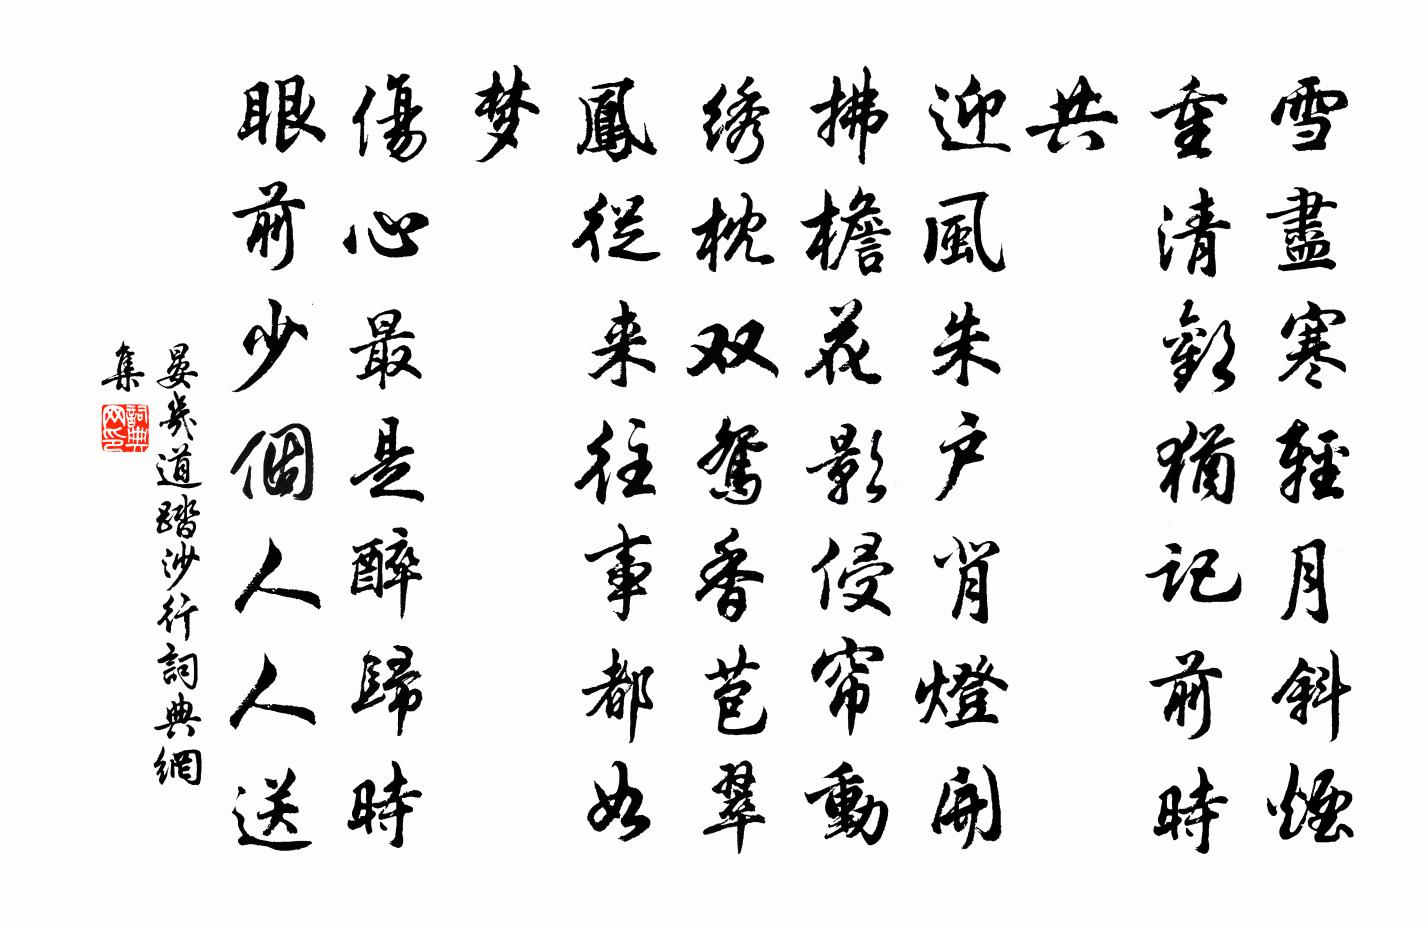 雪盡寒輕月斜煙
重清歡猶記前時
共
迎風朱户背燈開
拂檐花影侵帘動
绣枕双鴛香苞翠
鳳從来往事都如
梦
傷心最是醉歸時
眼前少個人人送
晏幾道踏沙行詞典網
集
詞典网印